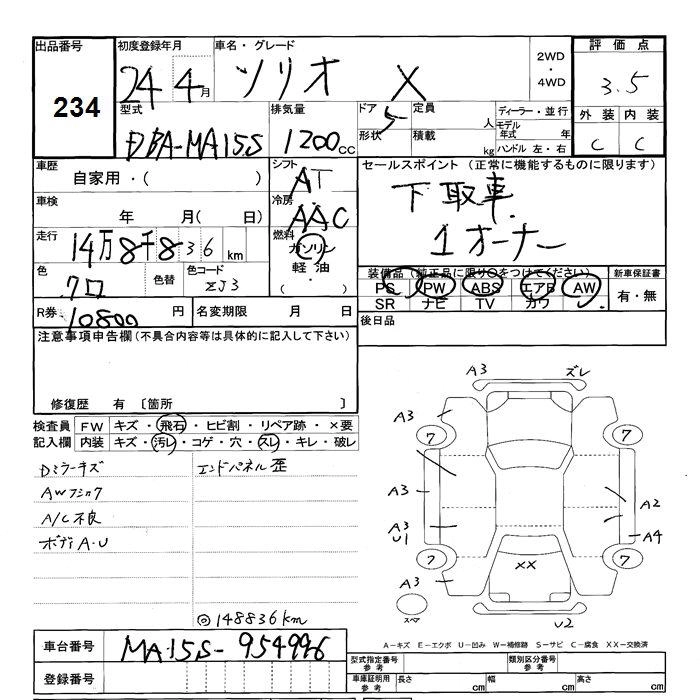 出品番号
234
初度登録年月
24 4月
車名・グレード
ソリオ X
2WD
4WD
評価点
3.5
外装 内装
C C
型式
DBA-MA15S
排気量
1200cc
ドア 5
形状
定員 人
積載 kg
ディーラー・並行
モデル年式 年
ハンドル 左・右
車歴
自家用・( )
シフト
AT
セールスポイント(正常に機能するものに限ります)
下取車
1オーナー
車検
年 月( 日)
冷房
AAC
走行
14万8千836km
燃料
ガソリン
軽油
( ・ )
色
クロ
色替
色コード
ZJ3
装備品(純正品に限り○をつけてください)
PS PW ABS エアB AW
SR ナビ TV カワ
新車保証書
有・無
R券
10800円
名変期限 月 日
後日品
注意事項申告欄(不具合内容等は具体的に記入して下さい)
修復歴 有 〔箇所 〕
検査員記入欄
FW キズ・飛石・ヒビ割・リペア跡・×要
内装 キズ・汚レ・コゲ・穴・スレ・キレ・破レ
Dミラーキズ
エンドパネル歪
A/C不良
ボディA・U
◎148836km
A3 ズレ
A3
7 7
A3
A2
A3
U1
A4
7 7
XX
A3
スペア
U2
A−キズ E−エクボ U−凹み W−補修跡 S−サビ C−腐食 XX−交換済
車台番号
MA15S-954996
登録番号
型式指定番号
参考
類別区分番号
参考
車庫証明用
参考
長さ cm
幅 cm
高さ cm